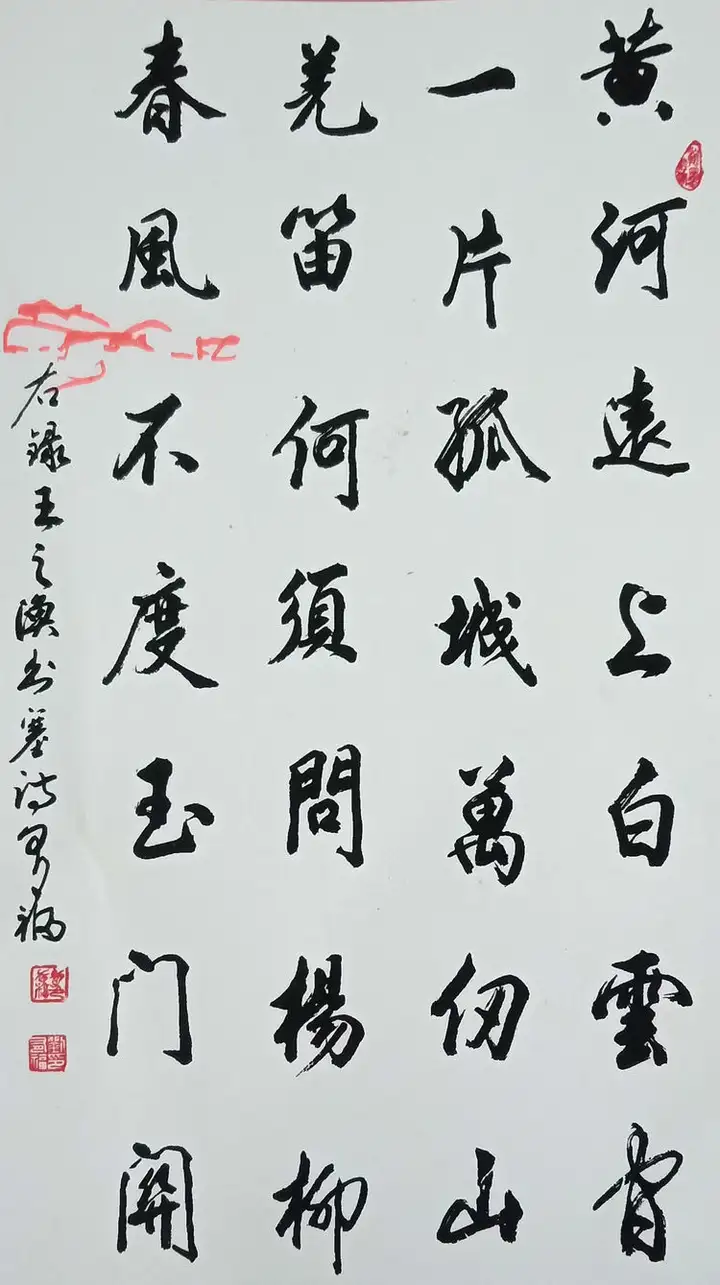 黄河遠上白雲間
一片孤城萬仞山
羌笛何須問楊柳
春風不度玉门関
右録王之渙出塞诗
福